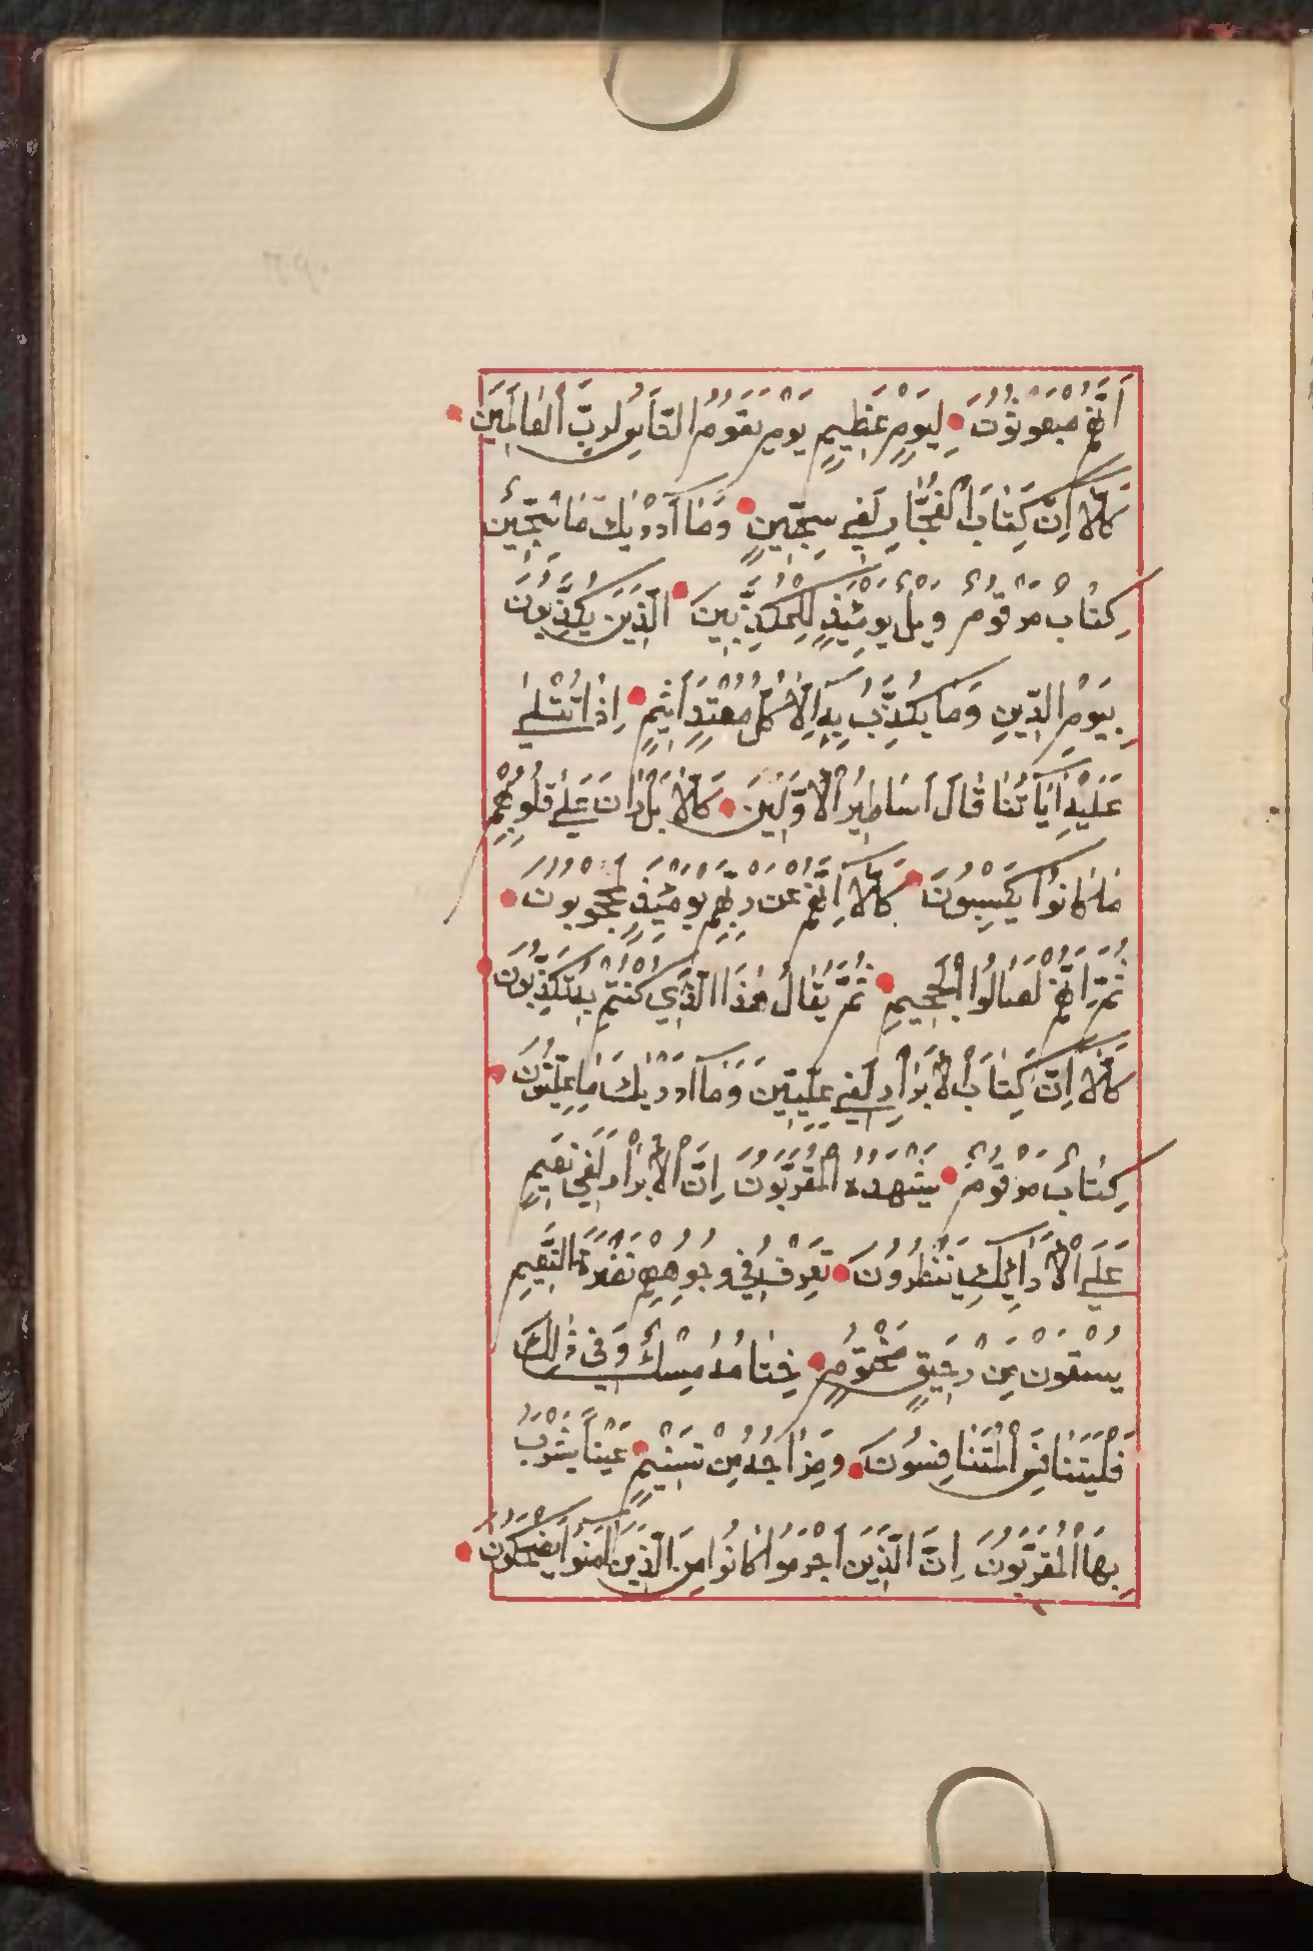 أَنَّهُمْ مَبْعُوثُونَ لِيَوْمٍ عَظِيمٍ يَوْمَ يَقُومُ النَّاسُ لِرَبِّ الْعَالَمِينَ
كَلَّا إِنَّ كِتَابَ الْفُجَّارِ لَفِي سِجِّينٍ وَمَا أَدْرَيكَ مَا سِجِّينٌ
كِتَابٌ مَرْقُومٌ وَيْلٌ يَوْمَئِذٍ لِلْمُكَذِّبِينَ الَّذِينَ يُكَذِّبُونَ
بِيَوْمِ الدِّينِ وَمَا يُكَذِّبُ بِهِ إِلَّا كُلُّ مُعْتَدٍ أَثِيمٍ إِذَا تُتْلَى
عَلَيْهِ آيَاتُنَا قَالَ أَسَاطِيرُ الْأَوَّلِينَ كَلَّا بَلْ رَانَ عَلَى قُلُوبِهِمْ
مَا كَانُوا يَكْسِبُونَ كَلَّا إِنَّهُمْ عَنْ رَبِّهِمْ يَوْمَئِذٍ لَمَحْجُوبُونَ
ثُمَّ إِنَّهُمْ لَصَالُوا الْجَحِيمِ ثُمَّ يُقَالُ هَذَا الَّذِي كُنْتُمْ بِهِ تُكَذِّبُونَ
كَلَّا إِنَّ كِتَابَ الْأَبْرَارِ لَفِي عِلِّيِّينَ وَمَا أَدْرَيكَ مَا عِلِّيُّونَ
كِتَابٌ مَرْقُومٌ يَشْهَدُهُ الْمُقَرَّبُونَ إِنَّ الْأَبْرَارَ لَفِي نَعِيمٍ
عَلَى الْأَرَائِكِ يَنْظُرُونَ تَعْرِفُ فِي وُجُوهِهِمْ نَضْرَةَ النَّعِيمِ
يُسْقَوْنَ مِنْ رَحِيقٍ مَخْتُومٍ خِتَامُهُ مِسْكٌ وَفِي ذَلِكَ
فَلْيَتَنَافَسِ الْمُتَنَافِسُونَ وَمِزَاجُهُ مِنْ تَسْنِيمٍ عَيْنًا يَشْرَبُ
بِهَا الْمُقَرَّبُونَ إِنَّ الَّذِينَ أَجْرَمُوا كَانُوا مِنَ الَّذِينَ آمَنُوا يَضْحَكُونَ